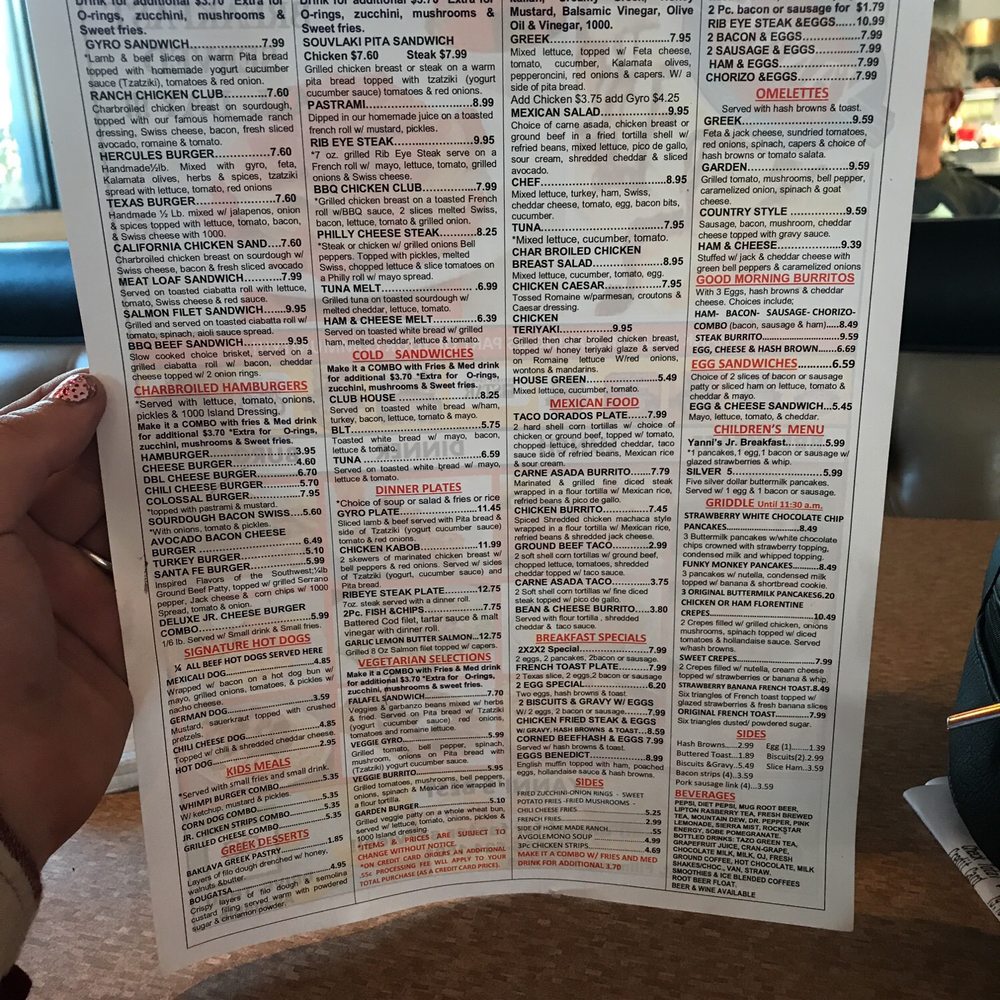 Drink for additional $3.70 *Extra for
O-rings, zucchini, mushrooms &
Sweet fries.
GYRO SANDWICH.................7.99
*Lamb & beef slices on warm Pita bread
topped with homemade yogurt cucumber
sauce (Tzatziki), tomatoes & red onion.
RANCH CHICKEN CLUB..........7.60
Charbroiled chicken breast on sourdough,
topped with our famous homemade ranch
dressing, Swiss cheese, bacon, fresh sliced
avocado, romaine & tomato.
HERCULES BURGER..............7.60
Handmade½lb. Mixed with gyro, feta,
Kalamata olives, herbs & spices, tzatziki
spread with lettuce, tomato, red onions
TEXAS BURGER....................7.60
Handmade ½ Lb. mixed w/ jalapenos, onion
& spices topped with lettuce, tomato, bacon,
& Swiss cheese with 1000.
CALIFORNIA CHICKEN SAND....7.60
Charbroiled chicken breast on sourdough w/
Swiss cheese, bacon & fresh sliced avocado
MEAT LOAF SANDWICH..........7.99
Served on toasted ciabatta roll with lettuce,
tomato, Swiss cheese & red sauce.
SALMON FILET SANDWICH.....9.95
Grilled and served on toasted ciabatta roll w/
tomato, spinach, aioli sauce spread.
BBQ BEEF SANDWICH............9.95
Slow cooked choice brisket, served on a
grilled ciabatta roll w/ bacon, cheddar
cheese topped w/ 2 onion rings.
CHARBROILED HAMBURGERS
*Served with lettuce, tomato, onions,
pickles & 1000 Island Dressing.
Make it a COMBO with fries & Med drink
for additional $3.70 *Extra for O-rings,
zucchini, mushrooms & Sweet fries.
HAMBURGER......................3.95
CHEESE BURGER................4.60
DBL CHEESE BURGER..........6.70
CHILI CHEESE BURGER........5.70
COLOSSAL BURGER.............7.95
*topped with pastrami & mustard.
SOURDOUGH BACON SWISS....5.60
*With onions, tomato & pickles.
AVOCADO BACON CHEESE
BURGER ...........................6.49
TURKEY BURGER................5.10
SANTA FE BURGER.............5.99
Inspired Flavors of the Southwest;½lb
Ground Beef Patty, topped w/ grilled Serrano
pepper, Jack cheese & corn chips w/ 1000
Spread, tomato & onion.
DELUXE JR. CHEESE BURGER
COMBO.............................5.99
1/6 lb. Served w/ Small drink & Small fries.
SIGNATURE HOT DOGS
¼ ALL BEEF HOT DOGS SERVED HERE
MEXICALI DOG.......................4.85
Wrapped w/ bacon on a hot dog bun w/
mayo, grilled onions, tomatoes, & pickles w/
nacho cheese.
GERMAN DOG........................3.59
Mustard, sauerkraut topped with crushed
pretzels.
CHILI CHEESE DOG.................4.85
Topped w/ chili & shredded cheddar cheese.
HOT DOG...............................2.95
KIDS MEALS
*Served with small fries and small drink.
WHIMPI BURGER COMBO..........5.35
W/ ketchup, mustard & pickles.
CORN DOG COMBO.................5.35
JR. CHICKEN STRIPS COMBO....5.35
GRILLED CHEESE COMBO........5.35
GREEK DESSERTS
BAKLAVA GREEK PASTRY..........1.85
Layers of filo dough drenched w/ honey,
walnuts &butter.
BOUGATSA............................4.95
Crispy layers of filo dough & semolina
custard filling, served warm with powdered
sugar & cinnamon powder.
Drink for additional $3.70 *Extra for
O-rings, zucchini, mushrooms &
Sweet fries.
SOUVLAKI PITA SANDWICH
Chicken $7.60 Steak $7.99
Grilled chicken breast or steak on a warm
pita bread topped with tzatziki (yogurt
cucumber sauce) tomatoes & red onions.
PASTRAMI..........................8.99
Dipped in our homemade juice on a toasted
french roll w/ mustard, pickles.
RIB EYE STEAK...................9.95
*7 oz. grilled Rib Eye Steak serve on a
French roll w/ mayo, lettuce, tomato, grilled
onions & Swiss cheese.
BBQ CHICKEN CLUB.............7.99
*Grilled chicken breast on a toasted French
roll w/BBQ sauce, 2 slices melted Swiss,
bacon, lettuce, tomato & grilled onion.
PHILLY CHEESE STEAK........8.25
*Steak or chicken w/ grilled onions Bell
peppers. Topped with pickles, melted
Swiss, chopped lettuce & slice tomatoes on
a Philly roll w/ mayo spread.
TUNA MELT........................6.99
Grilled tuna on toasted sourdough w/
melted cheddar, lettuce, tomato.
HAM & CHEESE MELT...........6.39
Served on toasted white bread w/ grilled
ham, melted cheddar, lettuce & tomato.
COLD SANDWICHES
Make it a COMBO with Fries & Med drink
for additional $3.70 *Extra for O-rings,
zucchini, mushrooms & Sweet fries.
CLUB HOUSE.......................8.25
Served on toasted white bread w/ham,
turkey, bacon, lettuce, tomato & mayo.
BLT.....................................5.75
Toasted white bread w/ mayo, bacon,
lettuce & tomato.
TUNA ..................................6.59
Served on toasted white bread w/ mayo,
lettuce & tomato.
DINNER PLATES
*Choice of soup or salad & fries or rice
GYRO PLATE.....................11.45
Sliced lamb & beef served with Pita bread &
side of Tzatziki (yogurt cucumber sauce)
tomato & red onions.
CHICKEN KABOB................11.99
2 skewers of marinated chicken breast w/
bell peppers & red onions. Served w/ sides
of Tzatziki (yogurt, cucumber sauce) and
Pita bread.
RIBEYE STEAK PLATE.........12.75
7oz. steak served with a dinner roll.
2Pc. FISH &CHIPS................7.75
Battered Cod filet, tartar sauce & malt
vinegar with dinner roll.
GARLIC LEMON BUTTER SALMON...12.75
Grilled 8 Oz Salmon filet topped w/ capers.
VEGETARIAN SELECTIONS
Make it a COMBO with Fries & Med drink
for additional $3.70 *Extra for O-rings,
zucchini, mushrooms & sweet fries.
FALAFEL SANDWICH..............7.70
Veggies & garbanzo beans mixed w/ herbs
& fried. Served on Pita bread w/ Tzatziki
(yogurt cucumber sauce) red onions,
tomatoes and romaine lettuce.
VEGGIE GYRO......................5.99
Grilled tomato, bell pepper, spinach,
mushroom, onions on Pita bread with
(Tzatziki) yogurt cucumber sauce.
VEGGIE BURRITO..................5.95
Grilled tomatoes, mushrooms, bell peppers,
onions, spinach & Mexican rice wrapped in
a flour tortilla.
GARDEN BURGER.................5.10
Grilled veggie patty on a whole wheat bun,
served w/ lettuce, tomato, onions, pickles &
1000 Island dressing.
*ITEMS & PRICES ARE SUBJECT TO
CHANGE WITHOUT NOTICE.
*ON CREDIT CARD ORDERS AN ADDITIONAL
.55¢ PROCESSING FEE WILL APPLY TO YOUR
TOTAL PURCHASE (AS A CREDIT CARD PRICE).
Mustard, Balsamic Vinegar, Olive
Oil & Vinegar, 1000.
GREEK...............................7.95
Mixed lettuce, topped w/ Feta cheese,
tomato, cucumber, Kalamata olives,
pepperoncini, red onions & capers. W/ a
side of pita bread.
Add Chicken $3.75 add Gyro $4.25
MEXICAN SALAD.................9.95
Choice of carne asada, chicken breast or
ground beef in a fried tortilla shell w/
refried beans, mixed lettuce, pico de gallo,
sour cream, shredded cheddar & sliced
avocado.
CHEF..................................8.95
Mixed lettuce, turkey, ham, Swiss,
cheddar cheese, tomato, egg, bacon bits,
cucumber.
TUNA..................................7.95
*Mixed lettuce, cucumber, tomato.
CHAR BROILED CHICKEN
BREAST SALAD...................8.95
Mixed lettuce, cucumber, tomato, egg.
CHICKEN CAESAR...............7.95
Tossed Romaine w/parmesan, croutons &
Caesar dressing.
CHICKEN
TERIYAKI...................9.95
Grilled then char broiled chicken breast,
topped w/ honey teriyaki glaze & served
on Romaine lettuce W/red onions,
wontons & mandarins.
HOUSE GREEN.....................5.49
Mixed lettuce, cucumber, tomato.
MEXICAN FOOD
TACO DORADOS PLATE.......7.99
2 hard shell corn tortillas w/ choice of
chicken or ground beef, topped w/ tomato,
chopped lettuce, shredded cheddar, taco
sauce side of refried beans, Mexican rice
& sour cream.
CARNE ASADA BURRITO......7.79
Marinated & grilled fine diced steak
wrapped in a flour tortilla w/ Mexican rice,
refried beans & pico de gallo.
CHICKEN BURRITO..............7.45
Spiced Shredded chicken machaca style
wrapped in a flour tortilla w/ Mexican rice,
refried beans & shredded jack cheese.
GROUND BEEF TACO...........2.99
2 soft shell corn tortillas w/ ground beef,
chopped lettuce, tomatoes, shredded
cheddar topped w/ taco sauce.
CARNE ASADA TACO...........3.75
2 Soft shell corn tortillas w/ fine diced
steak topped w/ pico de gallo.
BEAN & CHEESE BURRITO....3.80
Served with flour tortilla , shredded
cheddar & taco sauce.
BREAKFAST SPECIALS
2X2X2 Special.....................7.99
2 eggs, 2 pancakes, 2bacon or sausage.
FRENCH TOAST PLATE.........7.99
2 Texas slice, 2 eggs,2 bacon or sausage
2 EGG SPECIAL....................6.20
Two eggs, hash browns & toast.
2 BISCUITS & GRAVY W/ EGGS
W/ 2 eggs, 2 bacon or sausage.......7.99
CHICKEN FRIED STEAK & EGGS
W/ GRAVY, HASH BROWNS & TOAST...8.59
CORNED BEEFHASH & EGGS 7.99
Served w/ hash browns & toast.
EGGS BENEDICT..................8.99
English muffin topped with ham, poached
eggs, hollandaise sauce & hash browns.
SIDES
FRIED ZUCCHINI-ONION RINGS - SWEET
POTATO FRIES -FRIED MUSHROOMS -
CHILI CHEESE FRIES.....................5.25
FRENCH FRIES.............................2.99
SIDE OF HOME MADE RANCH............55
AVGOLEMONO SOUP....................4.99
3PC CHICKEN STRIPS...................4.69
MAKE IT A COMBO W/ FRIES AND MED
DRINK FOR ADDITIONAL 3.70
2 Pc. bacon or sausage for $1.79
RIB EYE STEAK &EGGS......10.99
2 BACON & EGGS...............7.99
2 SAUSAGE & EGGS...........7.99
HAM & EGGS.....................7.99
CHORIZO &EGGS...............7.99
OMELETTES
Served with hash browns & toast.
GREEK..............................9.59
Feta & jack cheese, sundried tomatoes,
red onions, spinach, capers & choice of
hash browns or tomato salata.
GARDEN............................9.59
Grilled tomato, mushrooms, bell pepper,
caramelized onion, spinach & goat
cheese.
COUNTRY STYLE ................9.59
Sausage, bacon, mushroom, cheddar
cheese topped with gravy sauce.
HAM & CHEESE..................9.39
Stuffed w/ jack & cheddar cheese with
green bell peppers & caramelized onions
GOOD MORNING BURRITOS
With 3 Eggs, hash browns & cheddar
cheese. Choices include;
HAM- BACON- SAUSAGE- CHORIZO-
COMBO (bacon, sausage & ham).....8.49
STEAK BURRITO......................9.59
EGG, CHEESE & HASH BROWN......6.69
EGG SANDWICHES..............6.59
Choice of 2 slices of bacon or sausage
patty or sliced ham on lettuce, tomato &
cheddar & mayo.
EGG & CHEESE SANDWICH...5.45
Mayo, lettuce, tomato, & cheddar.
CHILDREN'S MENU
Yanni's Jr. Breakfast............5.99
*1 pancakes,1 egg,1 bacon or sausage w/
glazed strawberries & whip.
SILVER 5...........................5.99
Five silver dollar buttermilk pancakes.
Served w/ 1 egg & 1 bacon or sausage.
GRIDDLE Until 11:30 a.m.
STRAWBERRY WHITE CHOCOLATE CHIP
PANCAKES....................8.49
3 Buttermilk pancakes w/white chocolate
chips crowned with strawberry topping,
condensed milk and whipped topping.
FUNKY MONKEY PANCAKES.........8.49
3 pancakes w/ nutella, condensed milk
topped w/ banana & shortbread cookie.
3 ORIGINAL BUTTERMILK PANCAKES6.20
CHICKEN OR HAM FLORENTINE
CREPES..............................10.49
2 Crepes filled w/ grilled chicken, onions
mushrooms, spinach topped w/ diced
tomatoes & hollandaise sauce. Served
w/hash browns.
SWEET CREPES.......................7.99
2 Crepes filled w/ nutella, cream cheese
topped w/ strawberries or banana & whip.
STRAWBERRY BANANA FRENCH TOAST.8.49
Six triangles of French toast topped w/
glazed strawberries & fresh banana slices
ORIGINAL FRENCH TOAST.........7.99
Six triangles dusted/ powdered sugar.
SIDES
Hash Browns....2.99 Egg (1).......1.39
Buttered Toast...1.89 Biscuits(2).2.99
Biscuits &Gravy..5.49 Slice Ham..3.59
Bacon strips (4)..3.59
Pork sausage link (4)...3.59
BEVERAGES
PEPSI, DIET PEPSI, MUG ROOT BEER,
LIPTON RASBERRY TEA, FRESH BREWED
TEA, MOUNTAIN DEW, DR. PEPPER, PINK
LEMONADE, SIERRA MIST, ROCKSTAR
ENERGY, SOBE POMEGRANATE.
BOTTLED DRINKS: TAZO GREEN TEA,
GRAPEFRUIT JUICE, CRAN-GRAPE,
CHOCOLATE MILK, MILK, OJ, FRESH
GROUND COFFEE, HOT CHOCOLATE, MILK
SHAKES/CHOC., VAN, STRAW.
SMOOTHIES & ICE BLENDED COFFEES
ROOT BEER FLOAT.
BEER & WINE AVAILABLE